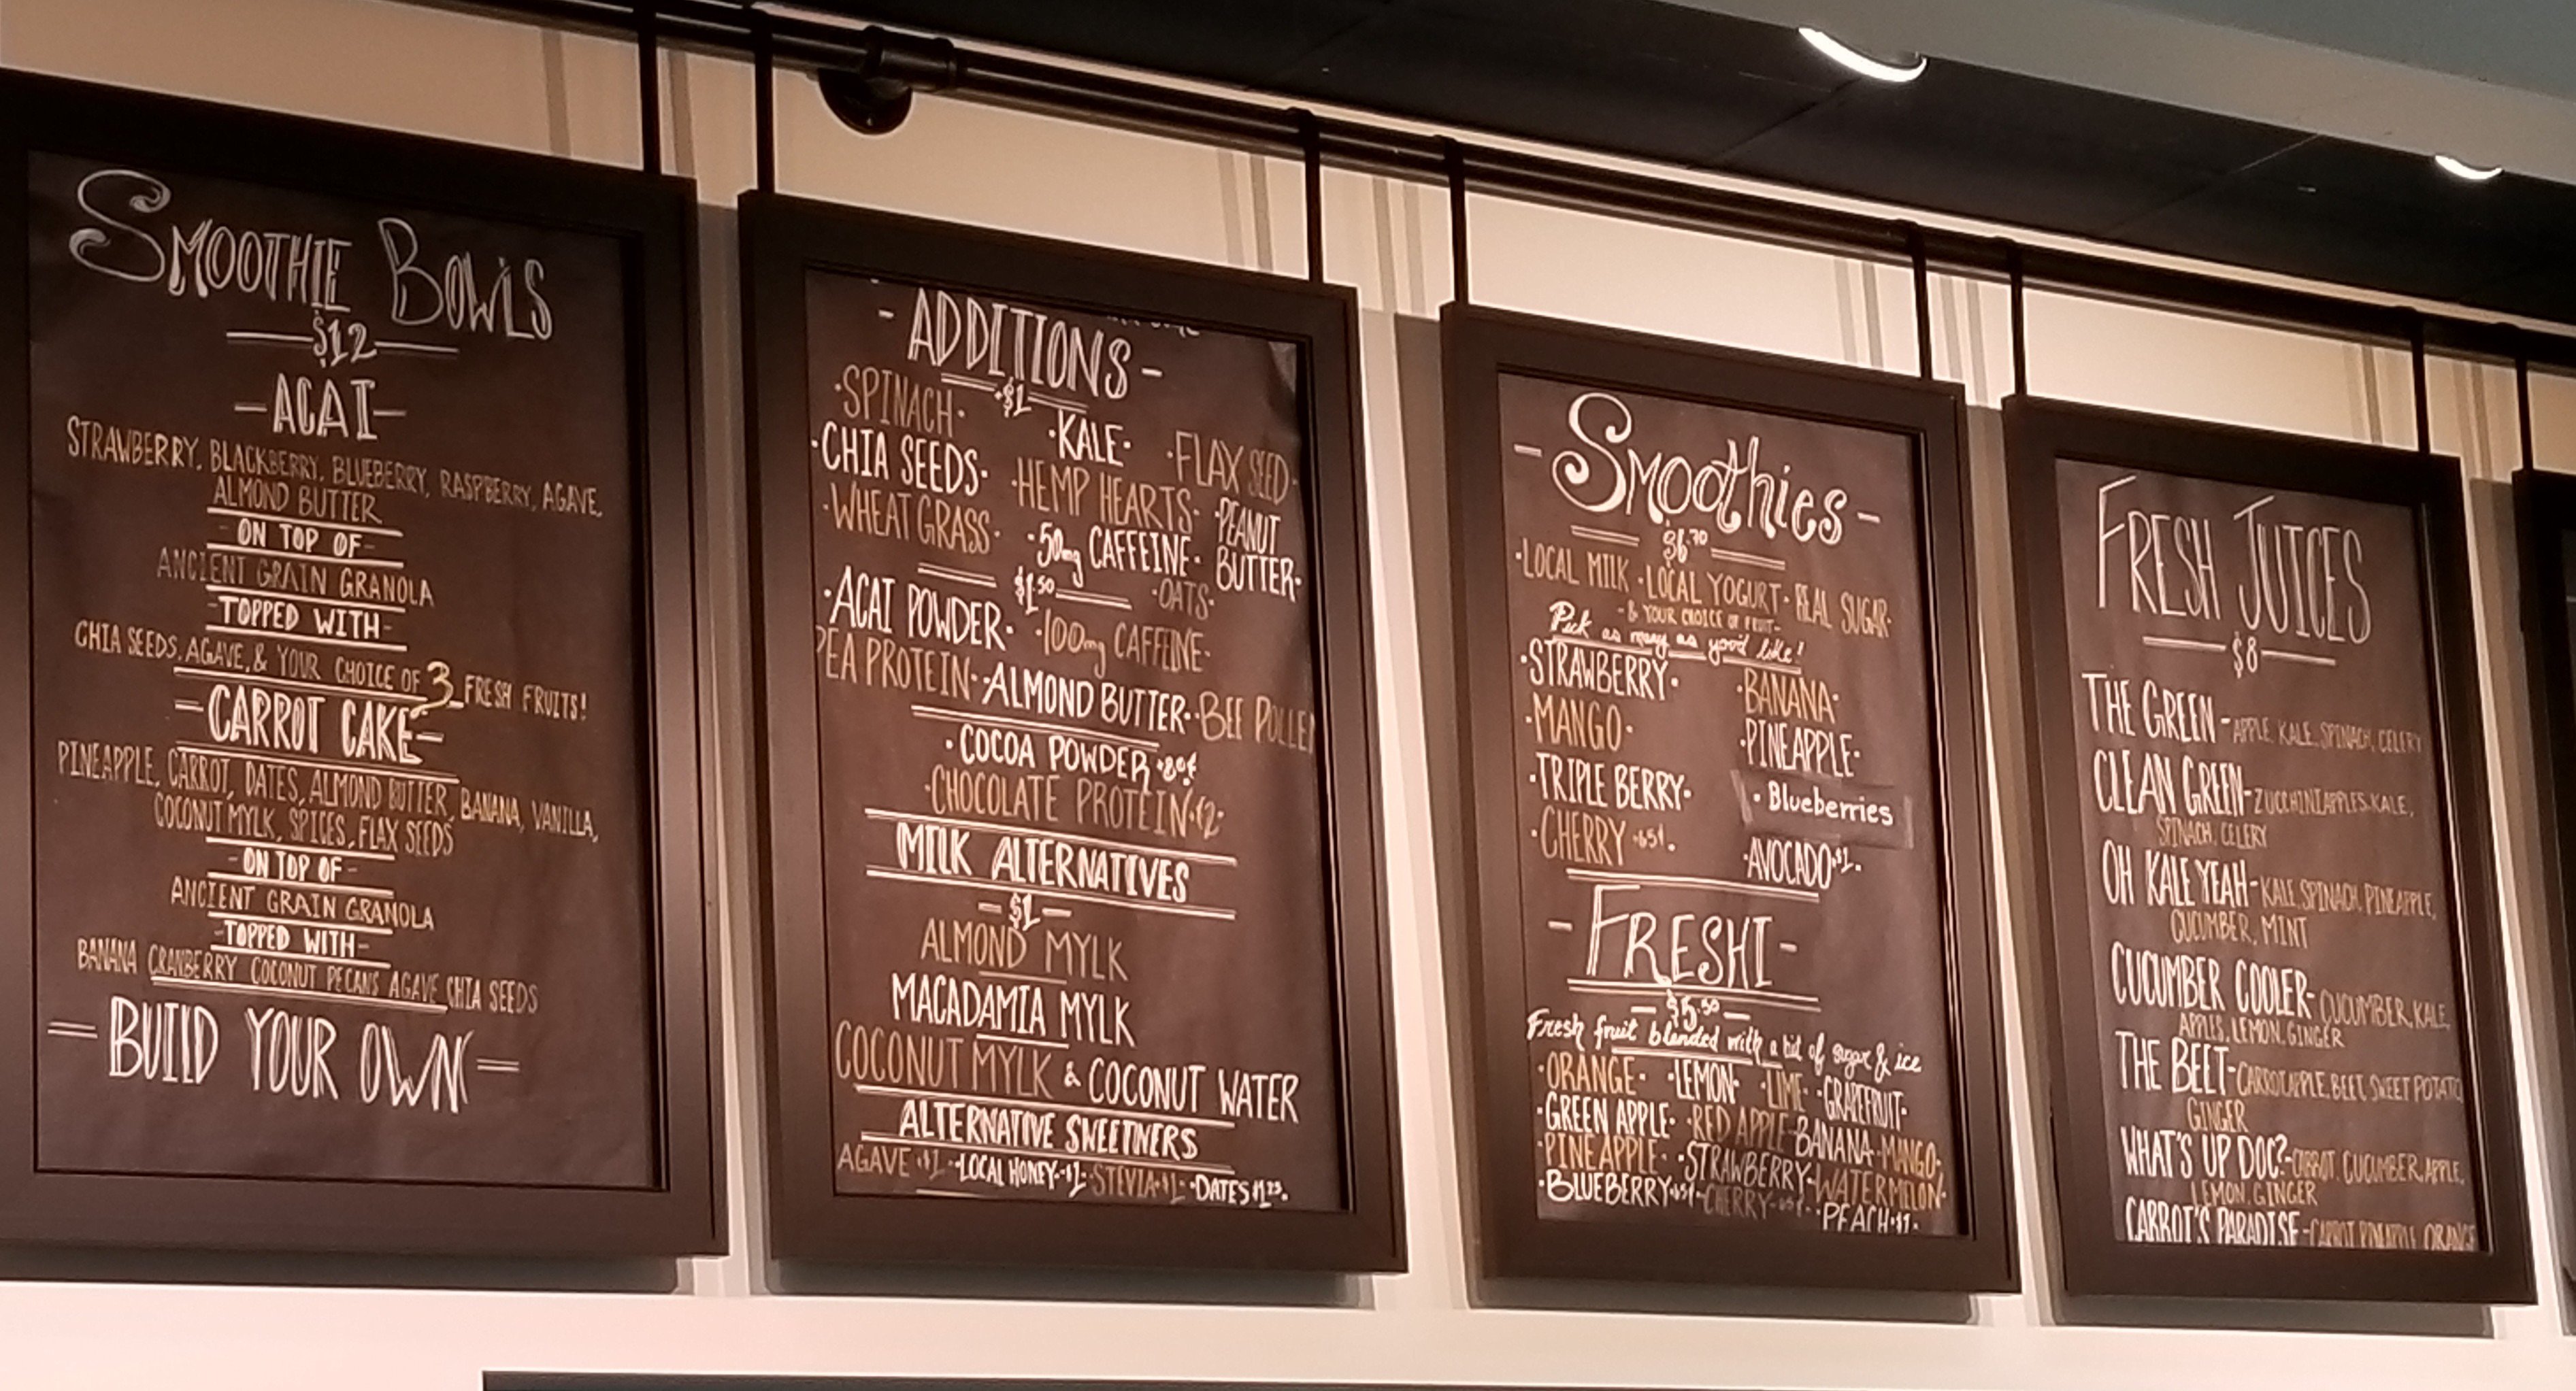 SMOOTHIE BOWLS
$12
-ACAI-
STRAWBERRY, BLACKBERRY, BLUEBERRY, RASPBERRY, AGAVE,
ALMOND BUTTER
-ON TOP OF-
ANCIENT GRAIN GRANOLA
-TOPPED WITH-
CHIA SEEDS, AGAVE, & YOUR CHOICE OF 3 FRESH FRUITS!
-CARROT CAKE-
PINEAPPLE, CARROT, DATES, ALMOND BUTTER, BANANA, VANILLA,
COCONUT MYLK, SPICES, FLAX SEEDS
-ON TOP OF-
ANCIENT GRAIN GRANOLA
-TOPPED WITH-
BANANA CRANBERRY COCONUT PECANS AGAVE CHIA SEEDS
=BUILD YOUR OWN=
- ADDITIONS -
+$1
·SPINACH· ·KALE· ·FLAX SEED·
·CHIA SEEDS· ·HEMP HEARTS· ·PEANUT
BUTTER·
·WHEAT GRASS· ·50mg CAFFEINE· ·OATS·
$1.50
·ACAI POWDER· ·100mg CAFFEINE·
PEA PROTEIN· ·ALMOND BUTTER· ·BEE POLLEN
·COCOA POWDER +80¢
·CHOCOLATE PROTEIN+$2·
MILK ALTERNATIVES
-$1-
ALMOND MYLK
MACADAMIA MYLK
COCONUT MYLK & COCONUT WATER
ALTERNATIVE SWEETNERS
AGAVE +$1· ·LOCAL HONEY+$1· STEVIA+$1· ·DATES $1.25·
-Smoothies-
$6.70
·LOCAL MILK ·LOCAL YOGURT· REAL SUGAR·
-& YOUR CHOICE OF FRUIT-
Pick as many as you'd like!
·STRAWBERRY· ·BANANA·
·MANGO· ·PINEAPPLE·
·TRIPLE BERRY· · Blueberries
·CHERRY +65¢· ·AVOCADO+$1·
-FRESHI-
-$5.50-
Fresh fruit blended with a bit of sugar & ice
·ORANGE· ·LEMON· ·LIME· ·GRAPEFRUIT·
·GREEN APPLE· ·RED APPLE· BANANA· MANGO·
·PINEAPPLE· ·STRAWBERRY· WATERMELON·
·BLUEBERRY+65¢· CHERRY+65¢· ·PEACH+$1·
FRESH JUICES
$8
THE GREEN - APPLE, KALE, SPINACH, CELERY
CLEAN GREEN- ZUCCHINI APPLES, KALE,
SPINACH, CELERY
OH KALE YEAH- KALE, SPINACH, PINEAPPLE,
CUCUMBER, MINT
CUCUMBER COOLER- CUCUMBER, KALE,
APPLES, LEMON, GINGER
THE BEET- CARROT, APPLE, BEET, SWEET POTATO
GINGER
WHAT'S UP DOC?- CARROT, CUCUMBER, APPLE,
LEMON, GINGER
CARROT'S PARADISE - CARROT PINEAPPLE ORANGE